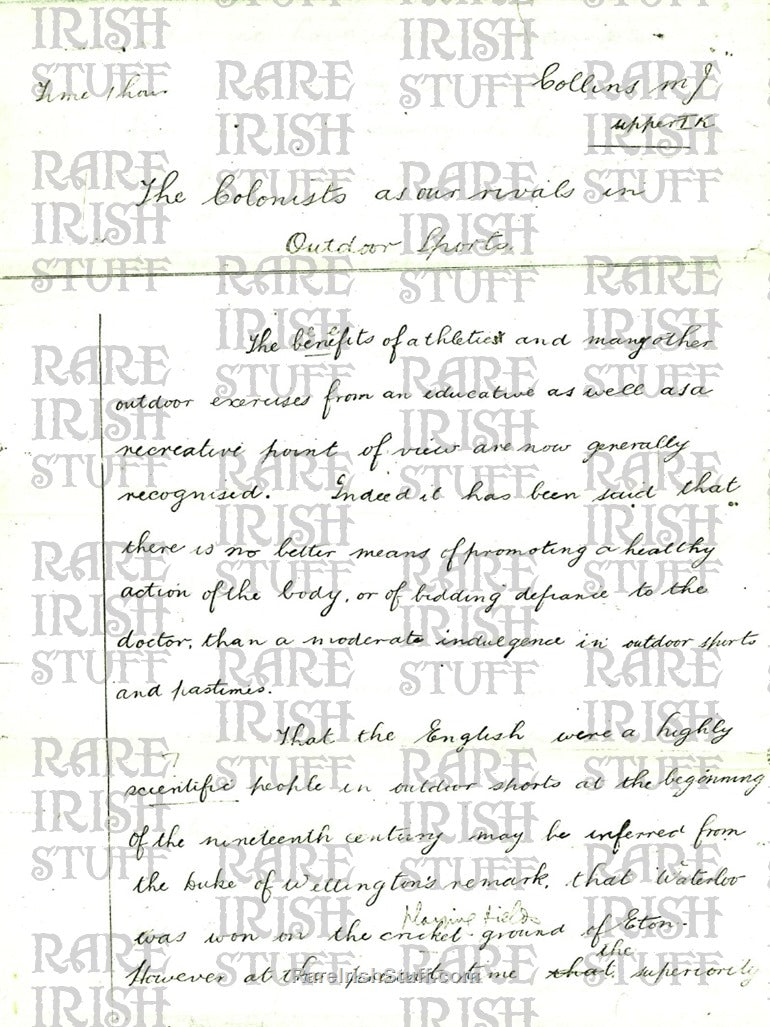 Time 1 hour
Collins M J
upper I K
The Colonists as our rivals in
Outdoor Sports.
The benefits of athletics and many other
outdoor exercises from an educative as well as a
recreative point of view are now generally
recognised. Indeed it has been said that
there is no better means of promoting a healthy
action of the body, or of bidding defiance to the
doctor, than a moderate indulgence in outdoor sports
and pastimes.
That the English were a highly
scientific people in outdoor sports at the beginning
of the nineteenth century may be inferred from
the Duke of Wellington's remark, that Waterloo
Playing Fields
was won on the cricket ground of Eton.
the
However at the present time that superiority
RareIrishStuff.com
RARE IRISH STUFF